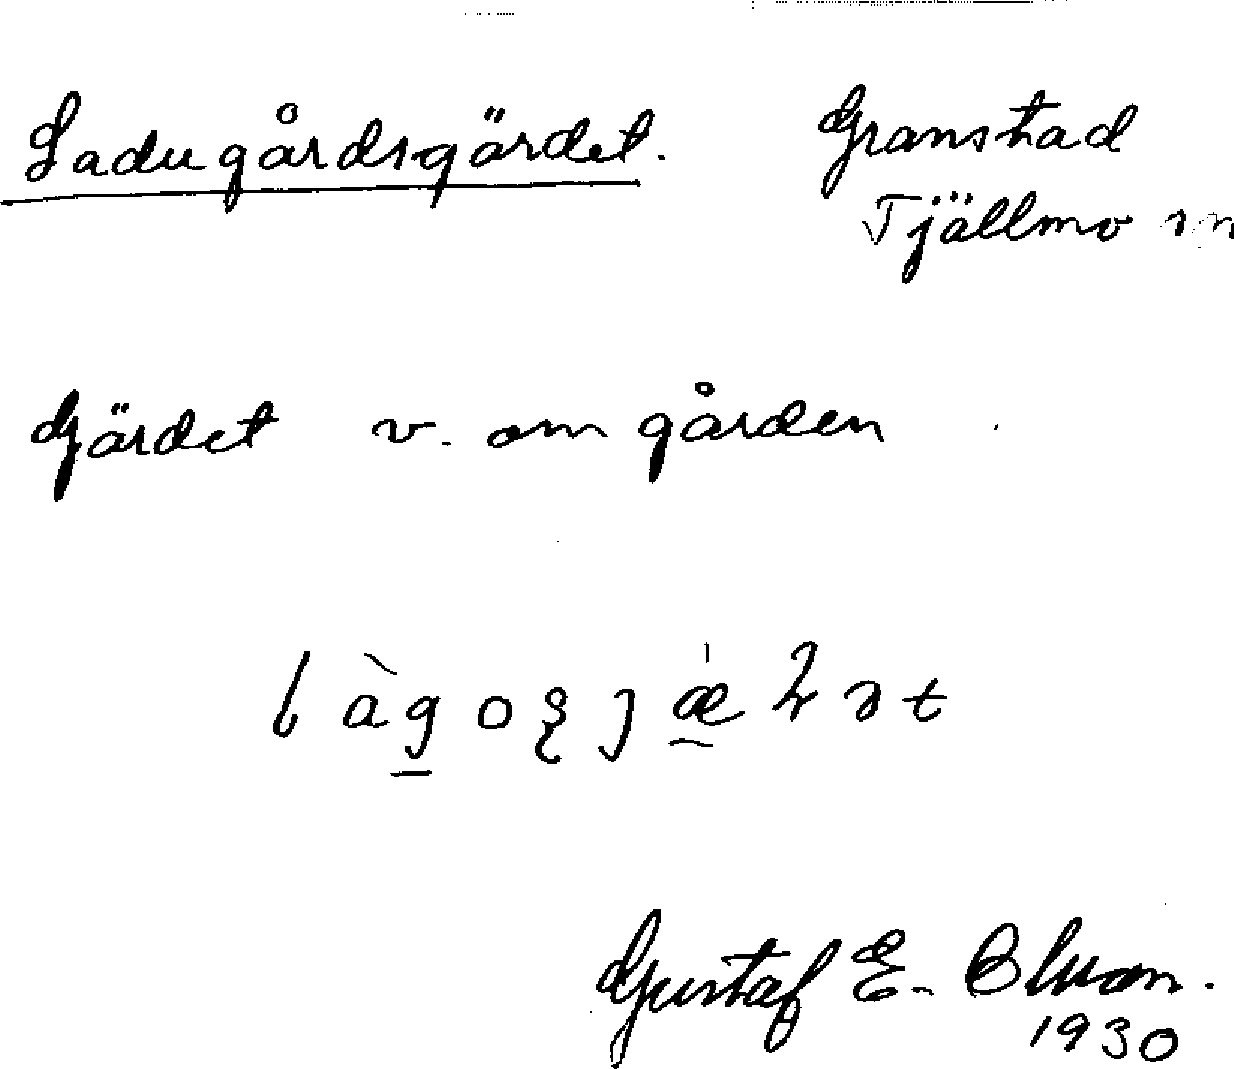 Ladugårdsgärdet. Granstad
Tjällmo sn
Gärdet v. om gården
Gustaf E.
1930